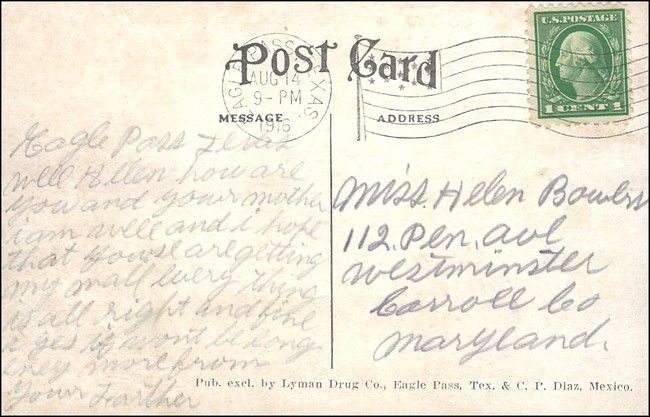 Post Card
EAGLE PASS TEXAS
AUG 14
9-PM
1916
U.S.POSTAGE
1 CENT 1
MESSAGE
ADDRESS
Eagle Pass Texas
well Helen how are
you and your mother
i am well and i hope
that youse are getting
my mail every thing
is all right and fine
i ges it wont be long
eney more from
your Farther
Miss. Helen Bowers
112. Pen. ave
westminster
Carroll Co
Maryland.
Pub. excl. by Lyman Drug Co., Eagle Pass, Tex. & C. P. Diaz, Mexico.